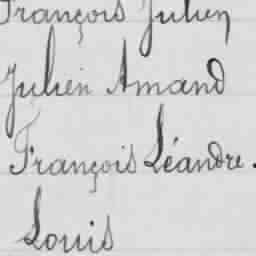 François Julien
Julien Amand
François Léandre.
Louis